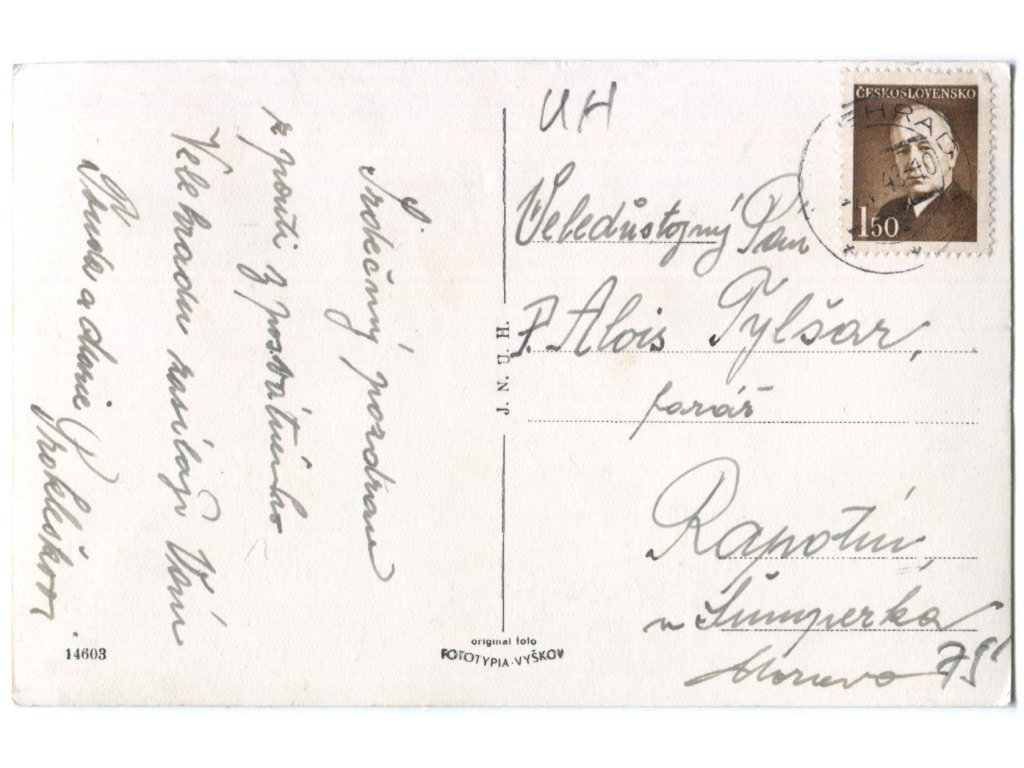 Srdečný pozdrav
z pouti z posvátného
Velehradu zasílají Vám
a
Prokleškovi
14603
J. N. U. H.
original foto
FOTOTYPIA-VYŠKOV
UH
ČESKOSLOVENSKO
1 50
Veledůstojný Pan
P. Alois Tylšar,
farář
Rapotín,
u Šumperka
Morava
75